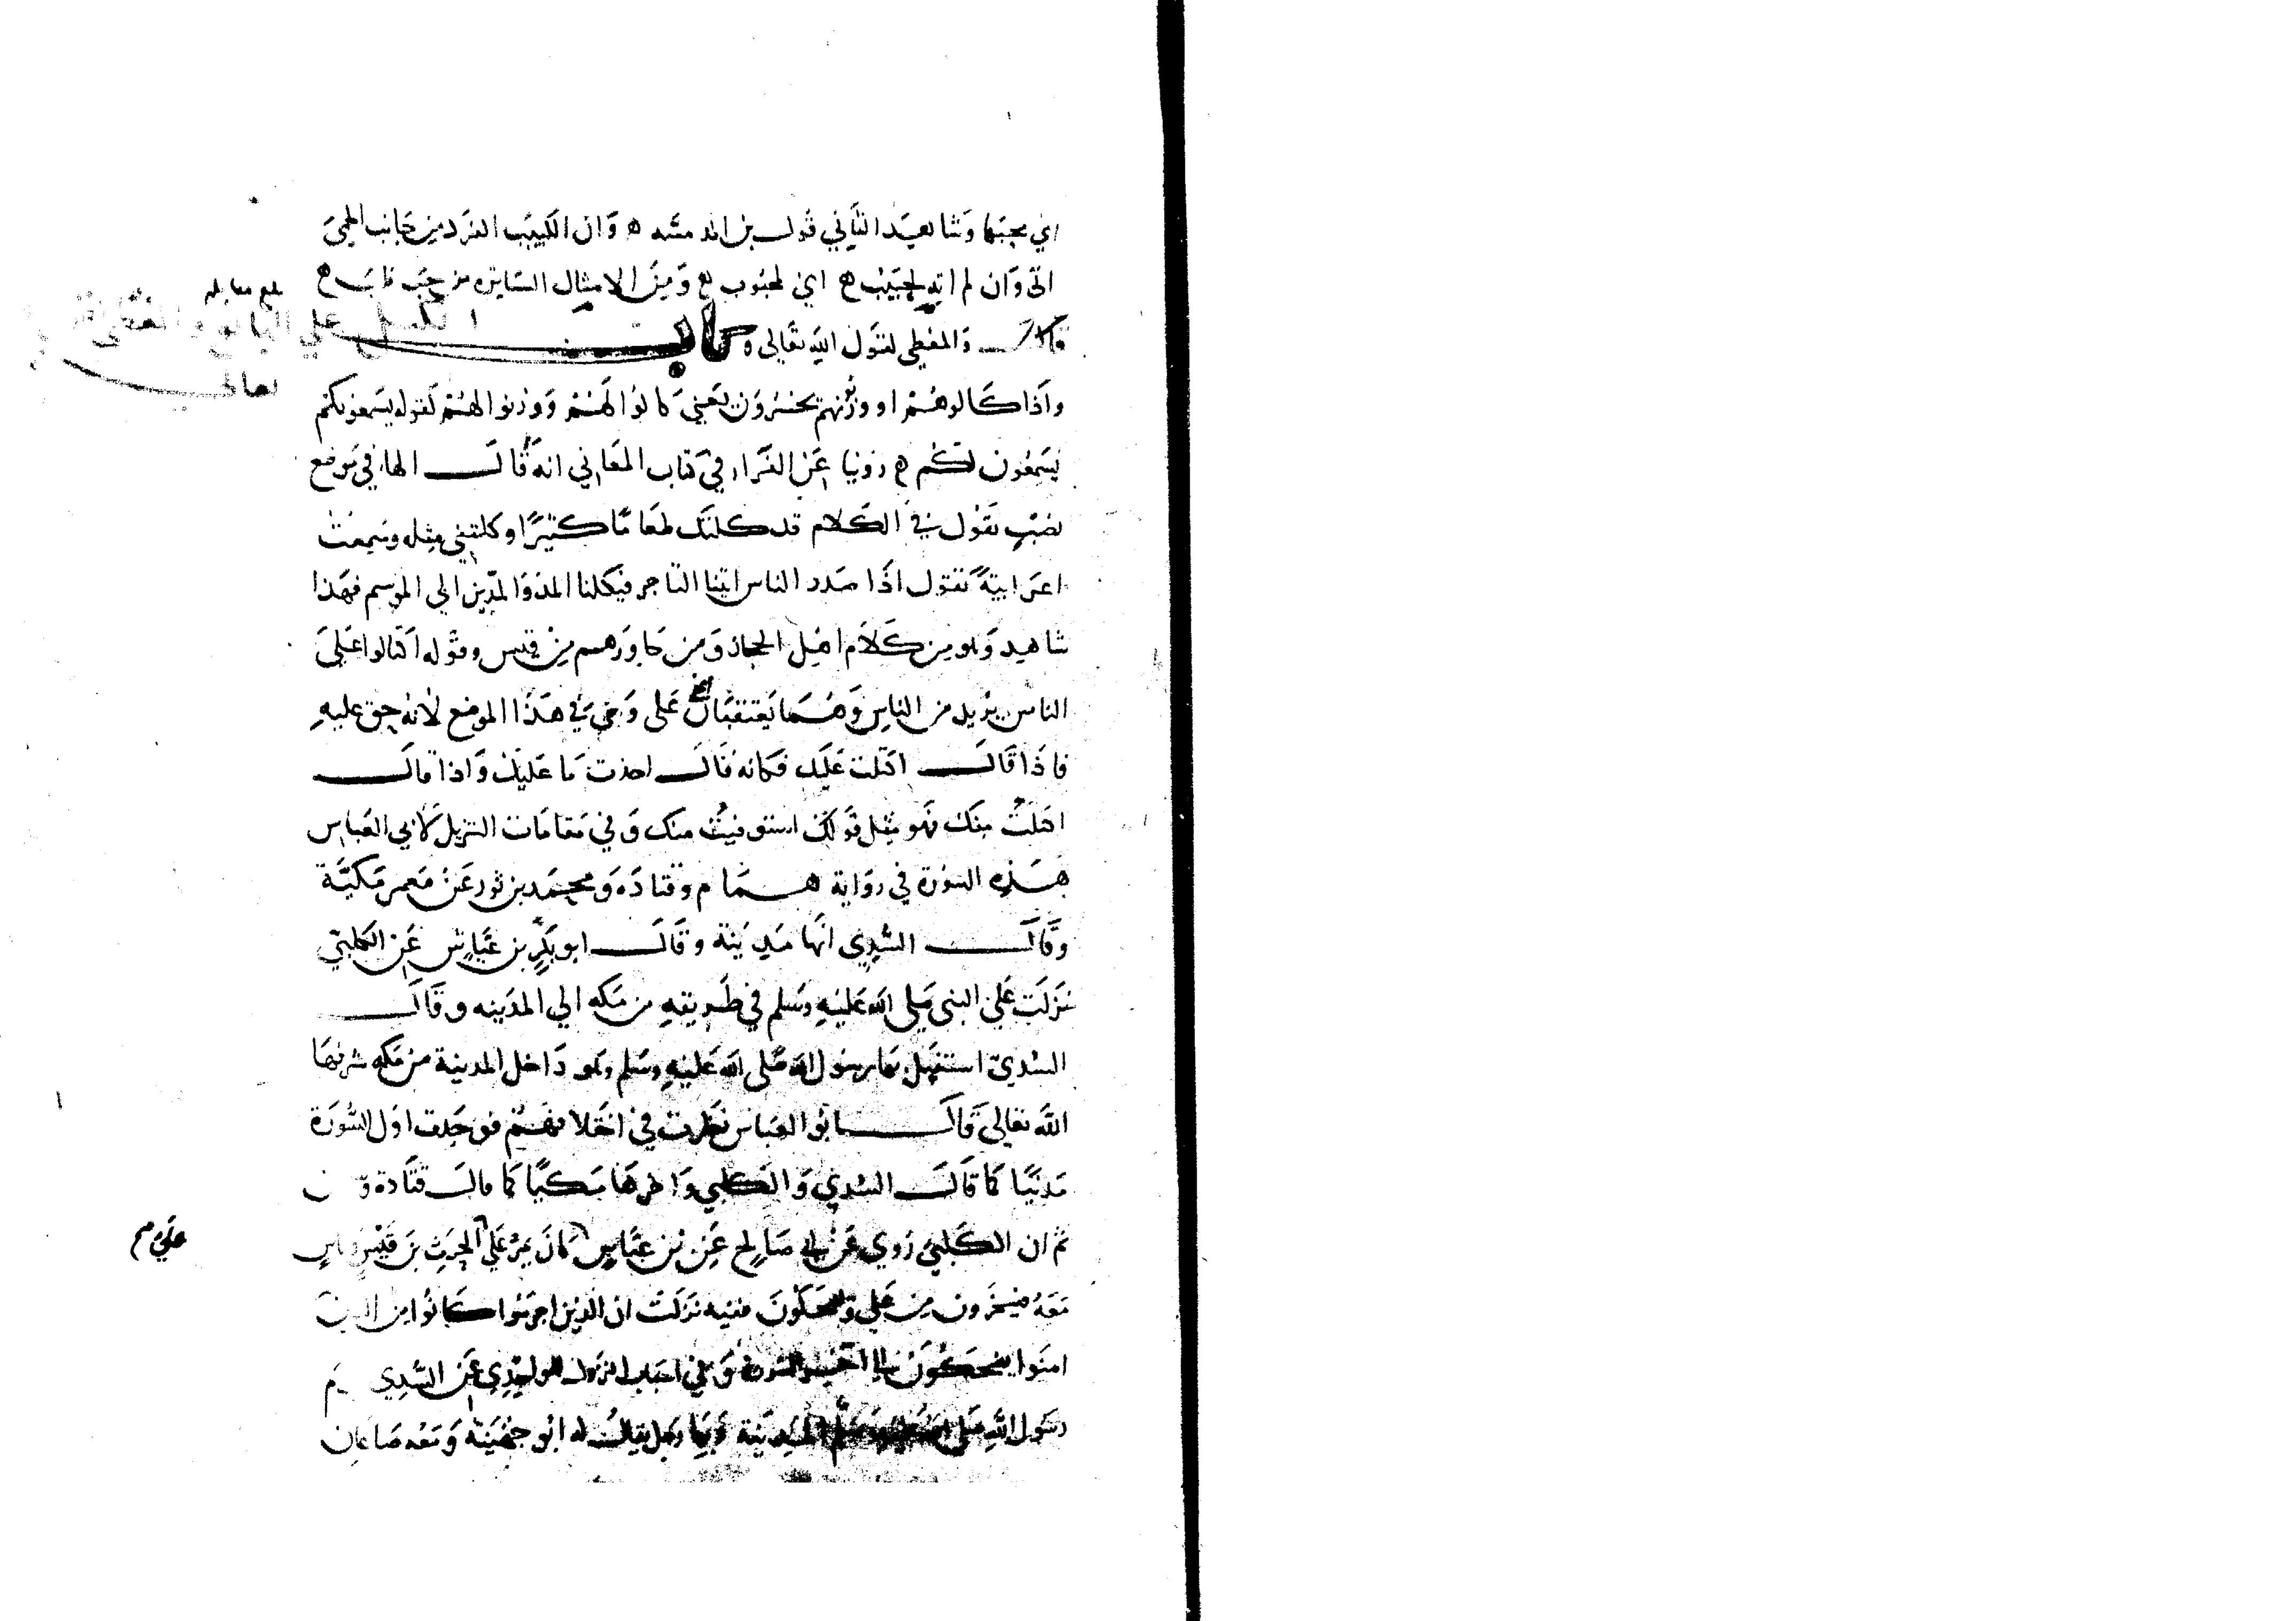 اي يحبها وشاهد الثاني قول بن الدمينه ه وان الكثيب الفرد من جانب الحمى
الي وان لم اته لحبيب ه اي لمحبوب ه ومن الامثال السائره من حب طب ه
بلغ مقابله
باب
الكيل علي البايع والمعطي لقول الله تعالى و
تعالى
واذا كالوهم او وزنوهم يخسرون يعني كالوا لهم ووزنوا لهم لقوله يسمعونكم
يسمعون لكم ه روينا عن الفراء في كتاب المعاني انه قال الهاء في موضع
نصب تقول في الكلام قد كلتك طعاما كثيرا وكلتني مثله وسمعت
اعرابية تقول اذا صدر الناس اتينا التاجر فيكلنا المد والمدين الي الموسم فهذا
شاهد وهو من كلام اهل الحجاز ومن جاورهم من قيس وقوله اكتالوا على
الناس يريد من الناس وهما يعتقبان على ومن في هذا الموضع لانه حق عليه
فاذا قال اكتلت عليك فكانه قال اخذت ما عليك واذا قال
اكتلت منك فهو مثل قولك استوفيت منك وفي مقامات التنزيل لابي العباس
هذه السورة في رواية همام وقتاده ومحمد بن ثور عن معمر مكية
وقال السدي انها مدينة وقال ابو بكر بن عياش عن الكلبي
نزلت علي النبي صلى الله عليه وسلم في طريقه من مكه الي المدينه وقال
السدي استقبل بها رسول الله صلى الله عليه وسلم وهو داخل المدينة من مكه شرفها
الله تعالى قال ابو العباس نظرت في اختلافهم فوجدت اول السورة
مدنيا كما قال السدي والكلبي واخرها مكيا كما قال قتادة و
ثم ان الكلبي روي عن ابي صالح عن بن عباس كان يمر علي الحرث بن قيس وناس
علي م
معه فيسخرون من علي ويضحكون ففيه نزلت ان الذين اجرموا كانوا من الذين
امنوا يضحكون الي اخر السورة وفي اسباب النزول للواحدي عن السدي
رسول الله صلى الله عليه وسلم المدينة وبها رجل يقال له ابو جهينة ومعه صاعان